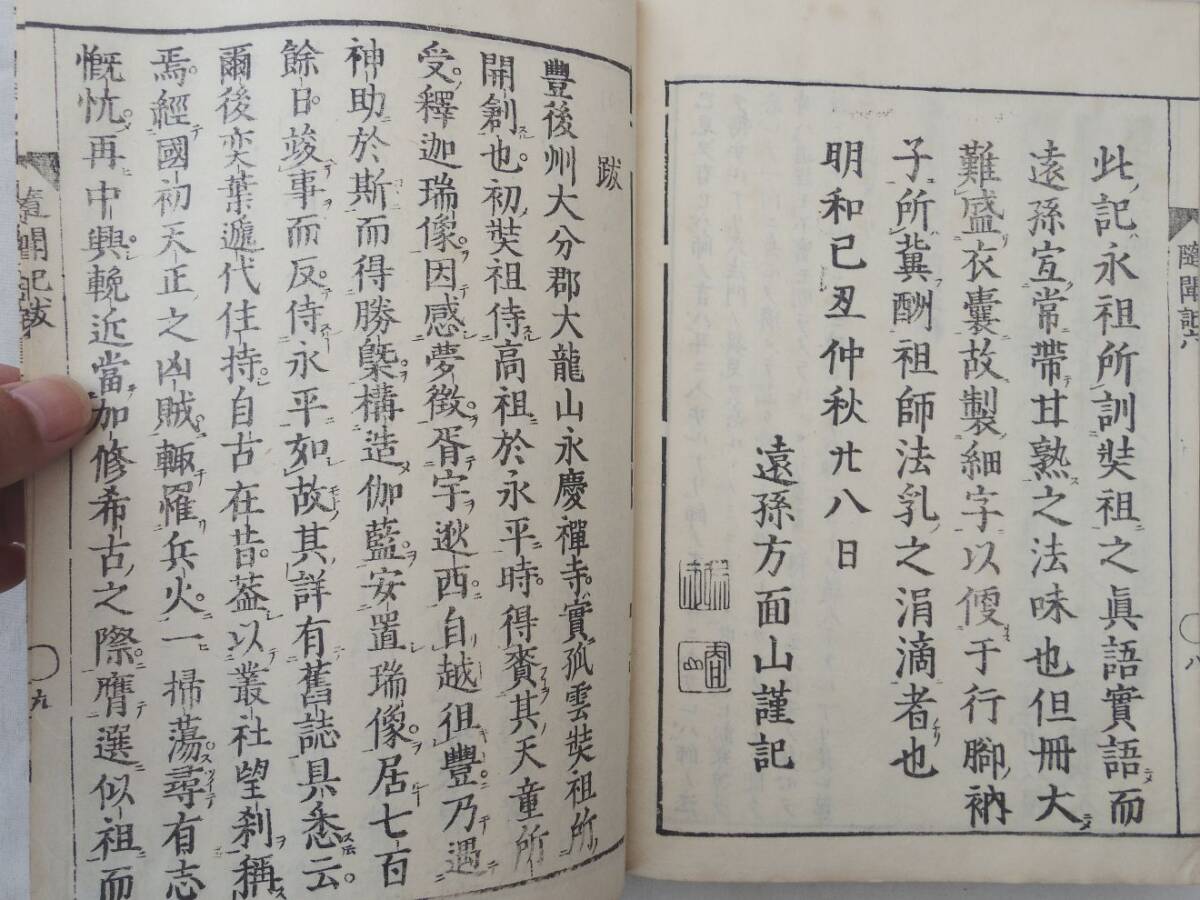 隨聞記六
此記永祖所訓奘祖之眞語實語而
遠孫宜常帶甘熟之法味也但冊大
難盛衣囊故製細字以便于行腳衲
子所冀酬祖師法乳之涓滴者也
明和己丑仲秋廿八日
遠孫方面山謹記
八
跋
豐後州大分郡大龍山永慶禪寺實孤雲奘祖所
開創也初奘祖侍高祖於永平時得賚其天童所
受釋迦瑞像因感夢徵胥宇逖西自越徂豐乃遇
神助於斯而得勝槩構造伽藍安置瑞像居七百
餘日竣事而反侍永平如故其詳有舊誌具悉云
爾後奕葉遞代住持自古在昔葢以叢社望刹稱
焉經國初天正之凶賊輙罹兵火一掃蕩尋有志
慨忼再中興輓近當加修希古之際膺選似祖而
隨聞記跋
九